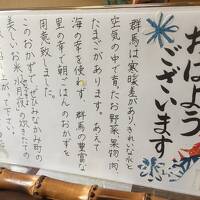 おはよう
ございます
群馬は寒暖差があり、きれいな水と
空気の中で育ったお野菜、果物、肉、
たまごがあります。あえて
海の幸を使わず、群馬の豊富な
里の幸で朝ごはんのおかずを
用意致しました。
このおかずで、ぜひみなかみ町の
美味しいお米 水月夜の炊きたての